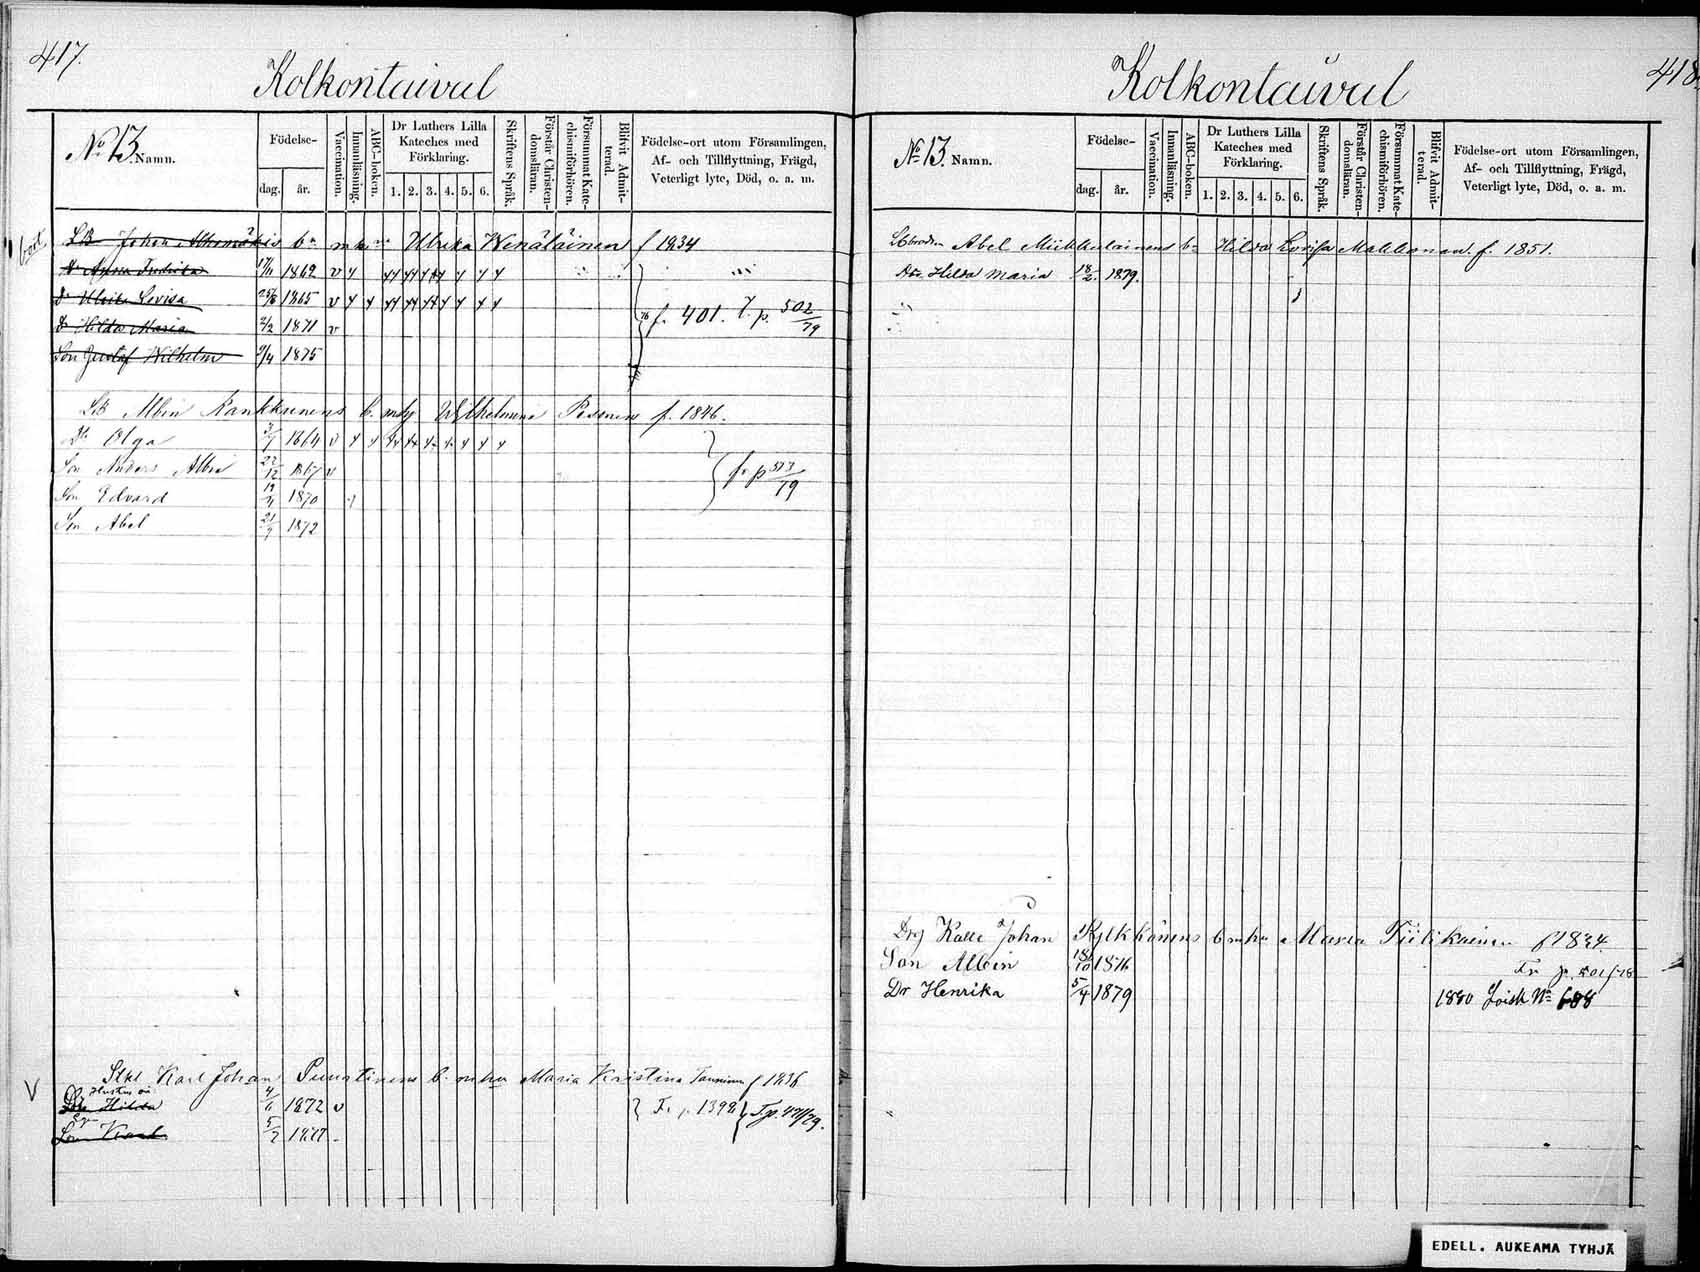 417.
Kolkontaival
No 13. Namn.
Födelse-
dag. år.
Vaccination.
Innanläsning.
ABC-boken.
Dr Luthers Lilla Kateches med Förklaring.
1. 2. 3. 4. 5. 6.
Skriftens Språk.
Förstår Christendomsläran.
Försummat Katechismiförhören.
Blifvit Admitterad.
Födelse-ort utom Församlingen,
Af- och Tillflyttning, Frägd,
Veterligt lyte, Död, o. a. m.
bort
Johan bn Ulrika Wenäläinen f 1834
Dr Anna 17/11 1862 v
Dr Ulrika Lovisa 25/8 1865 v
Dr Hilda Maria 2/2 1871 v
f. 401. T. p. 502/79
Son Gustaf Wilhelm 9/4 1875
Albin Wilhelmina f. 1846.
Dr Olga 3/7 1864 v
Son Anders Albin 22/12 1867 v
fr p 513/79
Son Edvard 19/11 1870
Son Abel 21/9 1872
V
Karl Johan Maria Kristina f 1836
Hustru
Hilda 4/6 1872 v
Fr p. 1398
Son Karl 5/2 1877
418.
Kolkontaival
No 13. Namn.
Födelse-
dag. år.
Vaccination.
Innanläsning.
ABC-boken.
Dr Luthers Lilla Kateches med Förklaring.
1. 2. 3. 4. 5. 6.
Skriftens Språk.
Förstår Christendomsläran.
Försummat Katechismiförhören.
Blifvit Admitterad.
Födelse-ort utom Församlingen,
Af- och Tillflyttning, Frägd,
Veterligt lyte, Död, o. a. m.
Abel Miikkulainens bn Hilda Lovisa f. 1851.
Dr Hilda Maria 18/2 1879.
Drg Kalle Johan Kylkkönens Maria Tiilikainen f 1834
Son Albin 18/10 1876
Fr p. 501/78
Dr Henrika 5/4 1879
1880 Loisk No 688
EDELL. AUKEAMA TYHJÄ